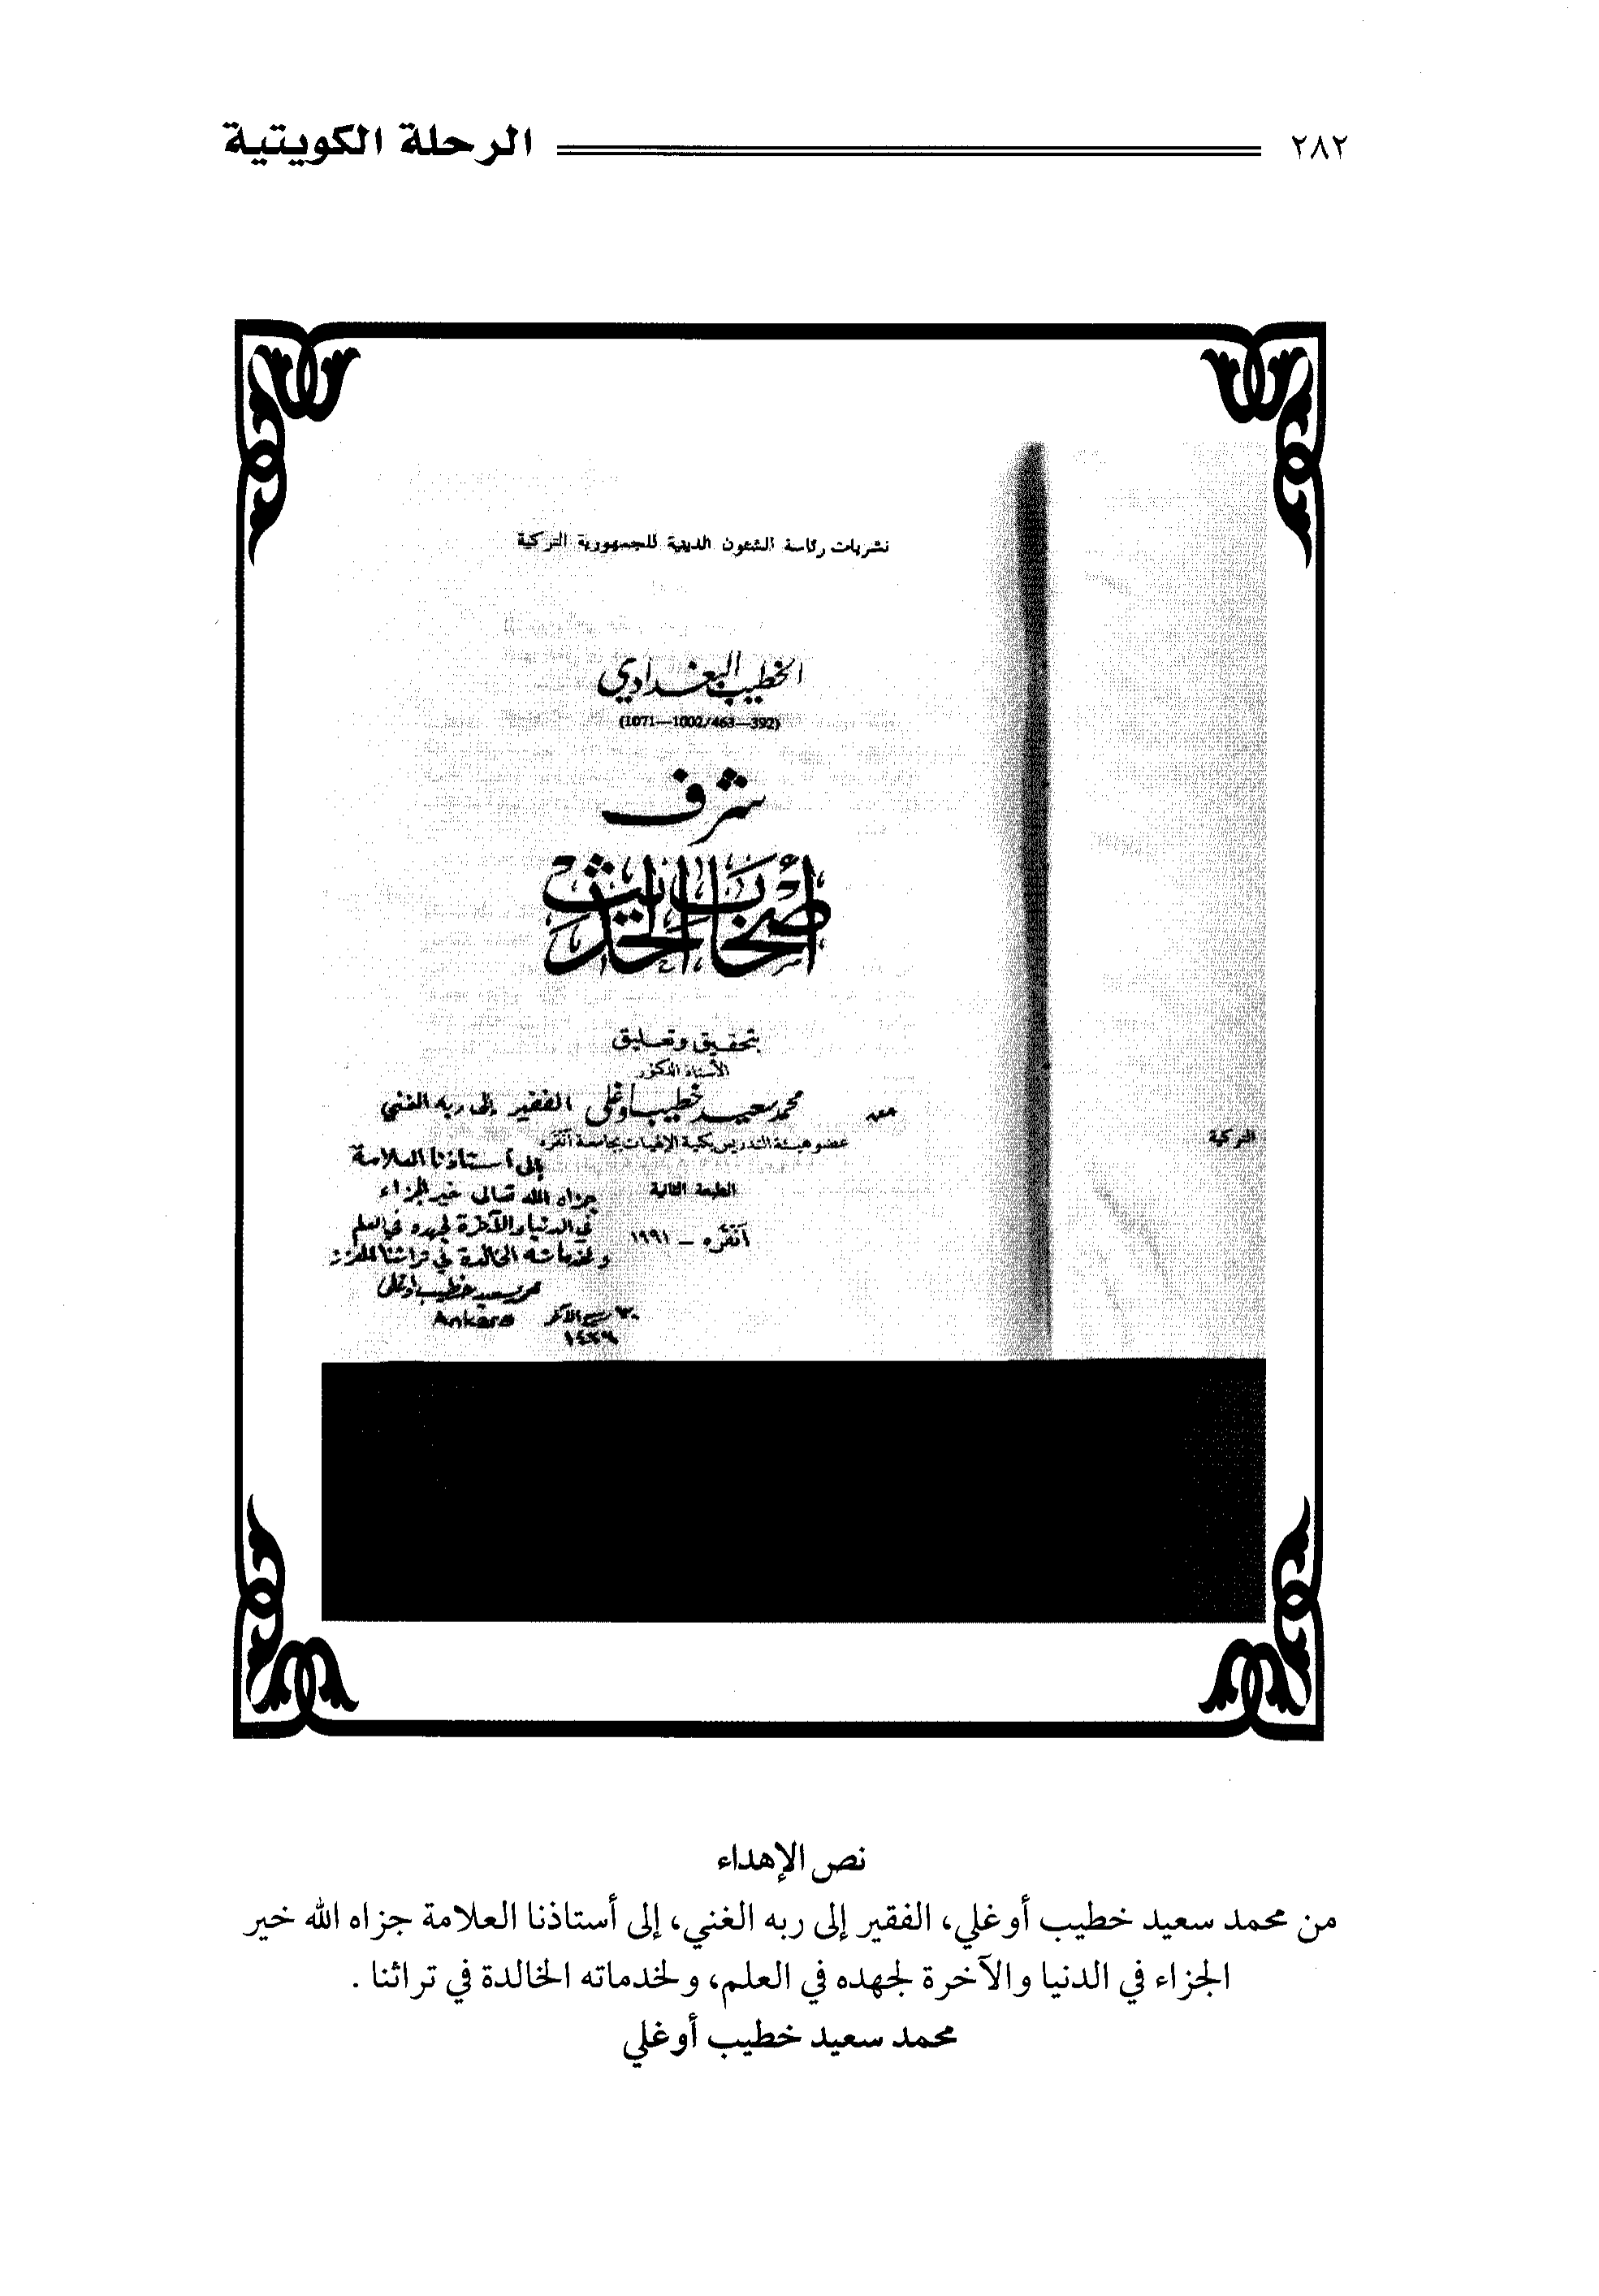 ٢٨٢ الرحلة الكويتية
نشريات رئاسة الشئون الدينية للجمهورية التركية
الخطيب البغدادي
(392—463/1002—1071)
شرف
أصحاب الحديث
بتحقيق وتعليق
الأستاذ الدكتور
محمد سعيد خطيب اوغلى الفقير إلى ربه الغني
عضو هيئة التدريس بكلية الإلهيات بجامعة أنقره
التركية
إلى أستاذنا العلامة
الطبعة الثانية
جزاه الله تعالى خير الجزاء
في الدنيا والآخرة لجهده في العلم
أنقره – ١٩٩١
ولخدماته الخالدة في تراثنا
محمد سعيد خطيب اوغلى
Ankara
نص الإهداء
من محمد سعيد خطيب أوغلي، الفقير إلى ربه الغني، إلى أستاذنا العلامة جزاه الله خير
الجزاء في الدنيا والآخرة لجهده في العلم، ولخدماته الخالدة في تراثنا .
محمد سعيد خطيب أوغلي